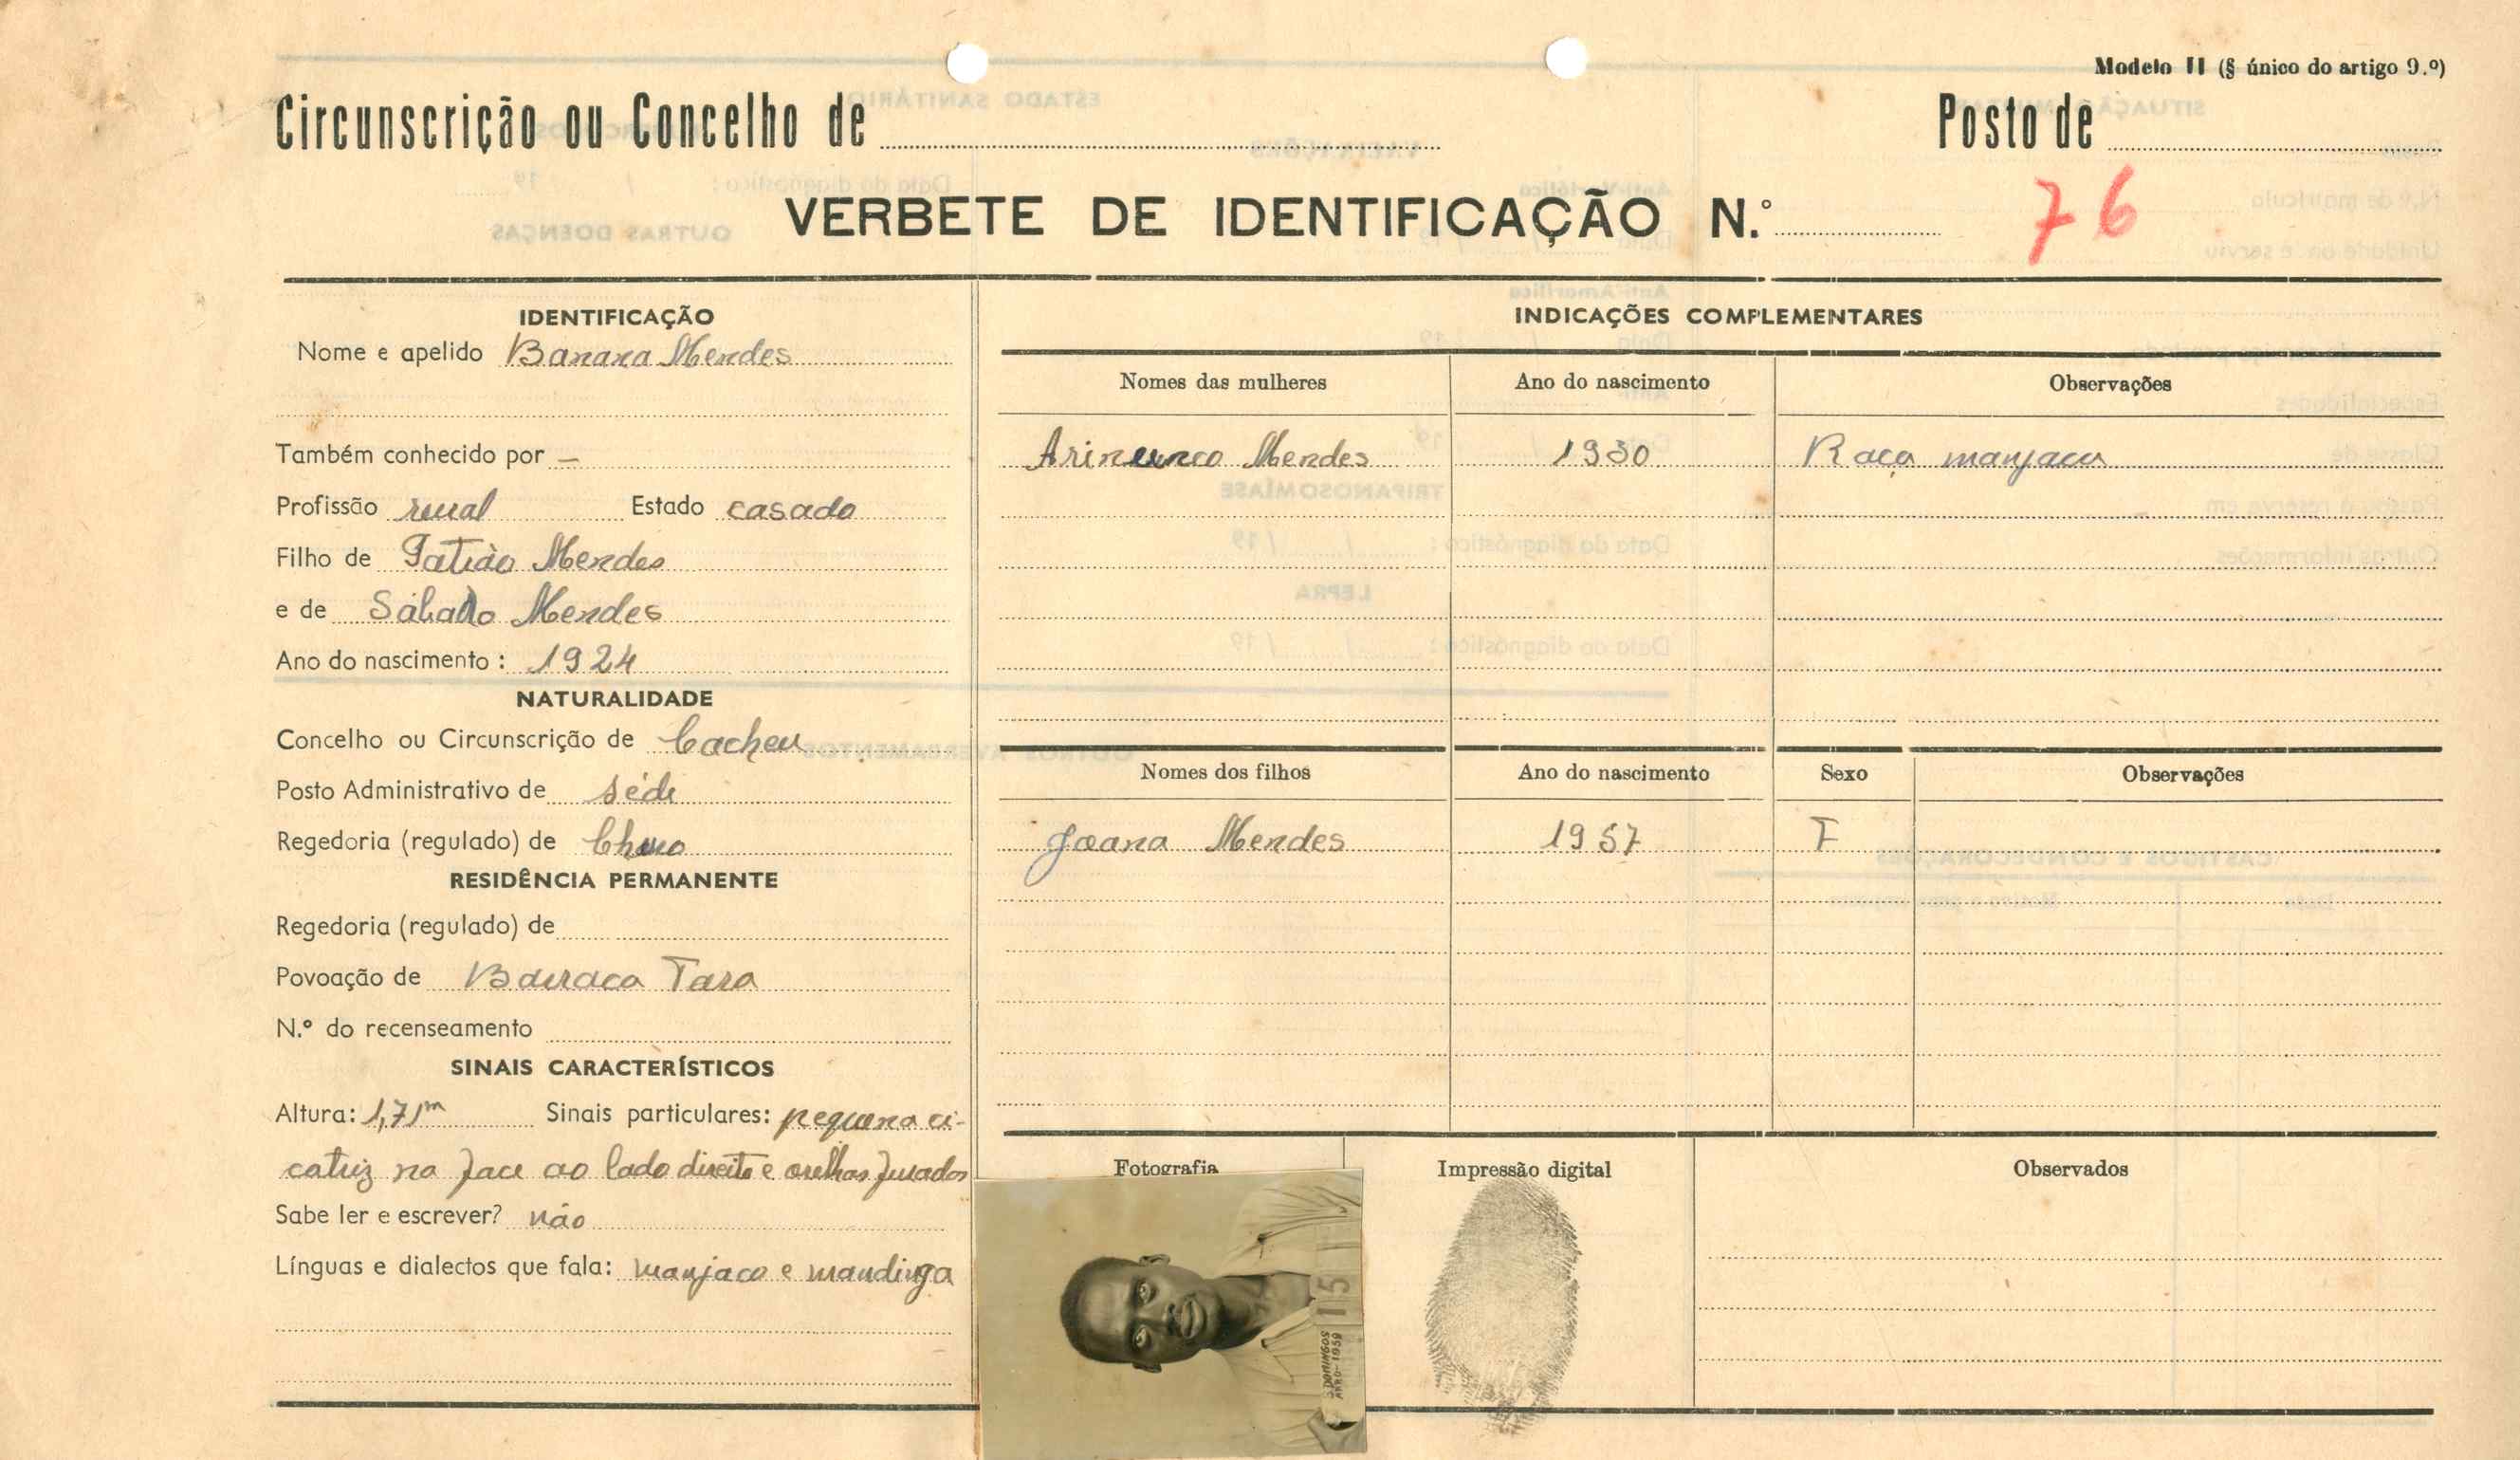 Modelo II (§ único do artigo 9.º)
Circunscrição ou Concelho de
Posto de
VERBETE DE IDENTIFICAÇÃO N.º
76
IDENTIFICAÇÃO
Nome e apelido Banana Mendes
Também conhecido por —
Profissão rural Estado casado
Filho de Mendes
e de Sábado Mendes
Ano do nascimento : 1924
NATURALIDADE
Concelho ou Circunscrição de Cacheu
Posto Administrativo de séde
Regedoria (regulado) de Churo
RESIDÊNCIA PERMANENTE
Regedoria (regulado) de
Povoação de Barraca Tara
N.º do recenseamento
SINAIS CARACTERÍSTICOS
Altura: 1,71m Sinais particulares: pequena ci-
catriz na face ao lado direito e orelhas furados
Sabe ler e escrever? não
Línguas e dialectos que fala: manjaco e mandinga
INDICAÇÕES COMPLEMENTARES
Nomes das mulheres Ano do nascimento Observações
Mendes 1930 Raça manjaca
Nomes dos filhos Ano do nascimento Sexo Observações
Joana Mendes 1957 F
Fotografia Impressão digital Observados
15
S DOMINGOS
ANRO-1959
ESTADO SANITÁRIO
VACINAÇÕES
OUTRAS DOENÇAS
TRIPANOSOMÍASE
Data do diagnóstico : / / 19
LEPRA
Data do diagnóstico : / / 19
OUTROS AVERBAMENTOS
CASTIGOS E CONDECORAÇÕES